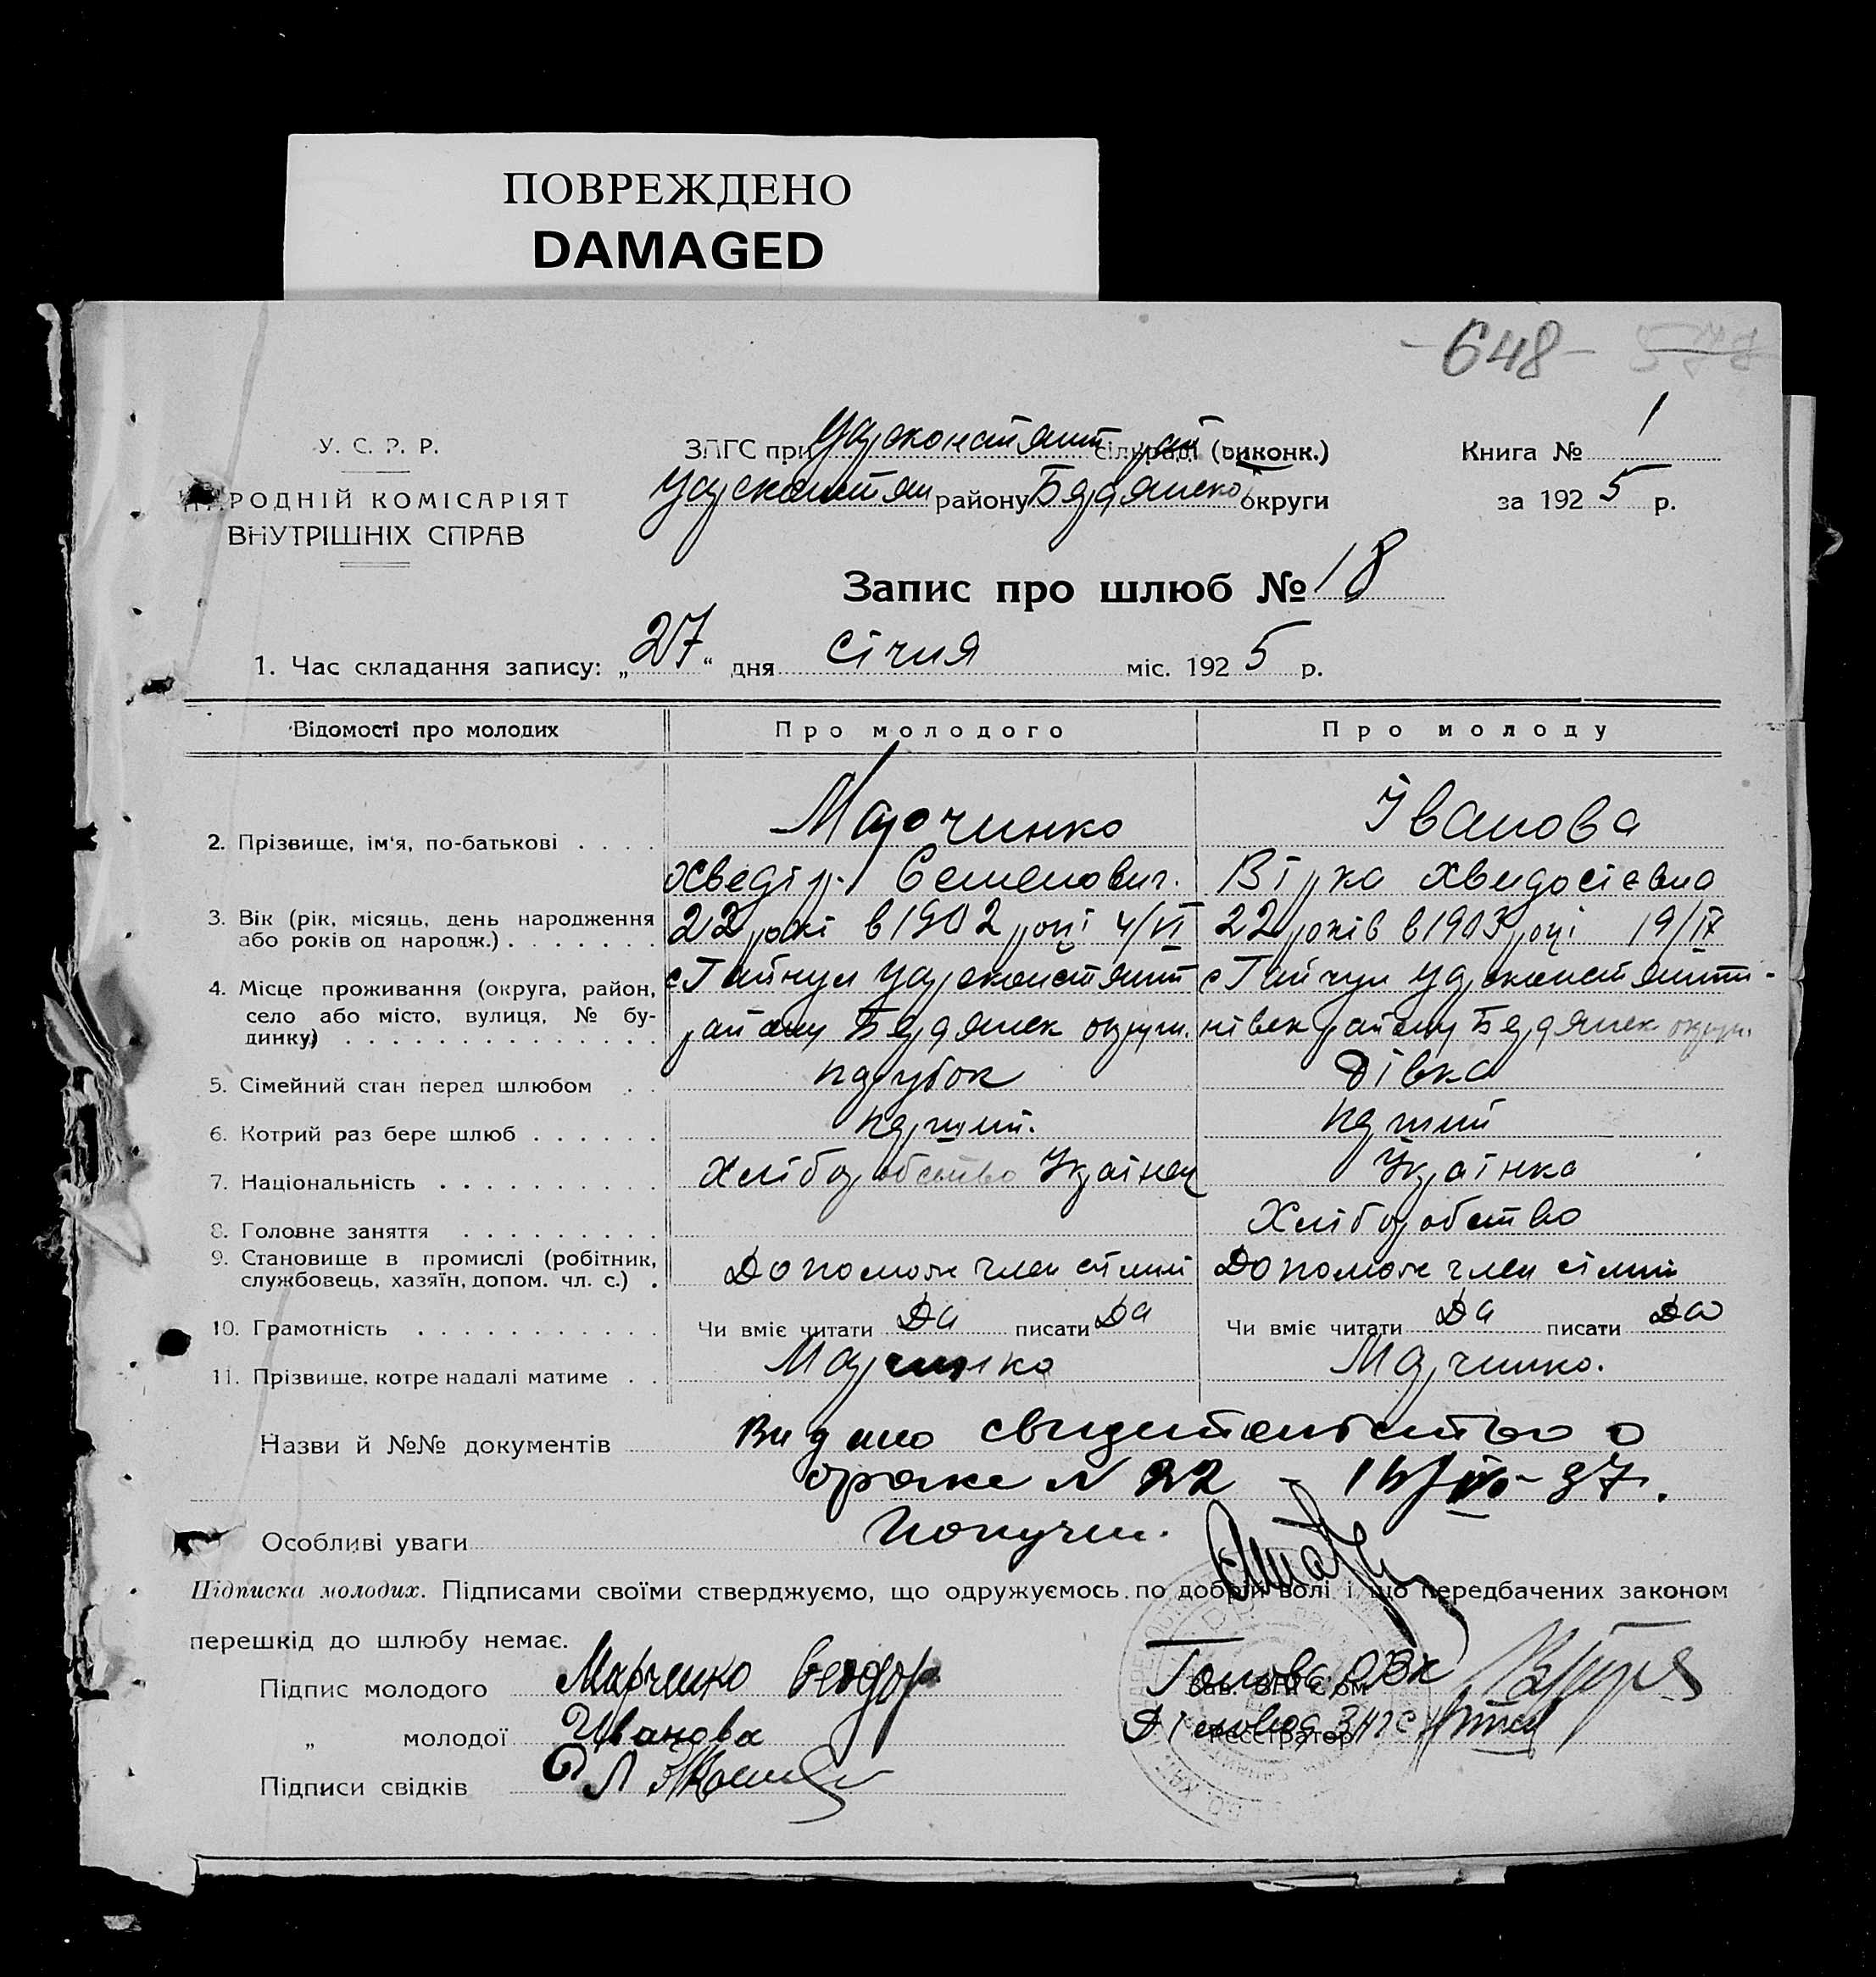 ПОВРЕЖДЕНО
DAMAGED
-648-
У. С. Р. Р.
НАРОДНІЙ КОМІСАРІЯТ
ВНУТРІШНІХ СПРАВ
ЗАГС при Цареконстянт рай сільраді (виконк.)
Царсконстян району Бердянсько округи
Книга № 1
за 1925 р.
Запис про шлюб № 18
1. Час складання запису: „27“ дня січня міс. 1925 р.
Відомості про молодих Про молодого Про молоду
2. Прізвище, ім'я, по-батькові . . . . Марочинко Іванова
Хведір Семенович. Вірка Хведосієвна
3. Вік (рік, місяць, день народження або років од народж.) . . . . . . . 22 рокі в 1902 році 4/VI 22 років в 1903 році 19/IX
4. Місце проживання (округа, район, село або місто, вулиця, № будинку) . . . . . . . . . . . . . . с Гайчул Царсконстянт с Гайчул Царсконстянти-
району Бердянск округи. нівск району Бердянск округи
5. Сімейний стан перед шлюбом . . парубок Дівка
6. Котрий раз бере шлюб . . . . . . перший. перший
7. Національність . . . . . . . . . . Хліборобство Українец Українка
8. Головне заняття . . . . . . . . . Хліборобство
9. Становище в промислі (робітник, службовець, хазяїн, допом. чл. с.) . Допомож член сімии Допомож член сімии
10. Грамотність . . . . . . . . . . . Чи вміє читати Да писати Да Чи вміє читати Да писати Да
11. Прізвище, котре надалі матиме . . Марчинко Марчинко.
Назви й №№ документів Видано свидетельство о
браке N 22 -37.
Особливі уваги Получил.
Підписка молодих. Підписами своїми стверджуємо, що одружуємось по добрій волі і що передбачених законом
перешкід до шлюбу немає.
Підпис молодого Марченко Феодор
„ молодої Иванова
Підписи свідків
Голова РВК
Зав. ВНГС'ом
Діловод ЗАГС
Реєстратор